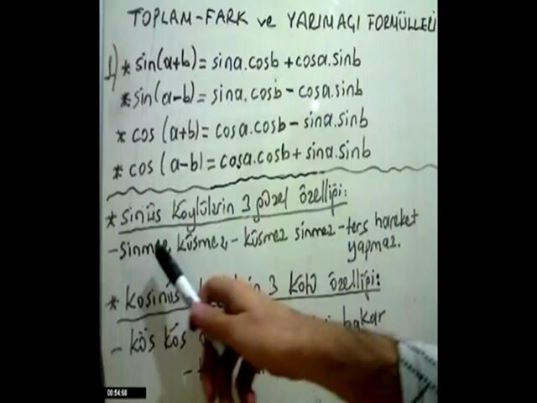 TOPLAM-FARK ve YARIMAÇI FORMÜLLERİ
1) * sin(a+b) = sina.cosb + cosa.sinb
* sin(a-b) = sina.cosb - cosa.sinb
* cos (a+b) = cosa.cosb - sina.sinb
* cos (a-b) = cosa.cosb + sina.sinb
* sinüs köylülerin 3 güzel özelliği:
- sinmez küsmez - küsmez sinmez - ters hareket
yapmaz.
* kosinüs 3 kötü özelliği:
- kös kös bakar
00:54:60